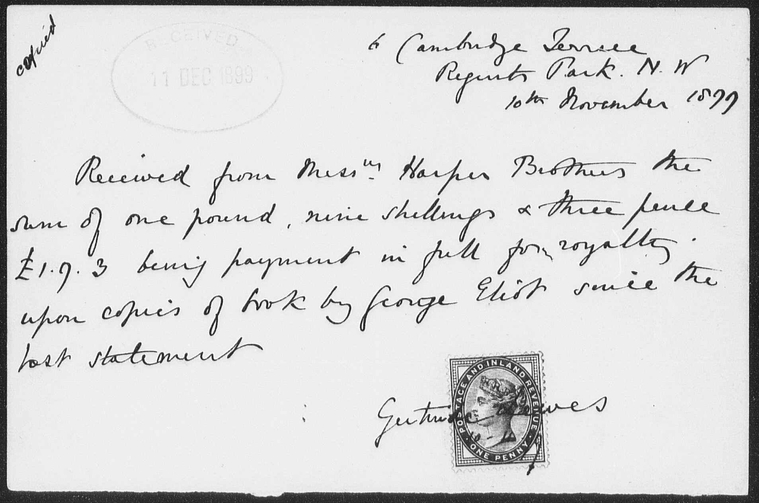 copied
RECEIVED
11 DEC 1899
6 Cambridge Terrace
Regents Park. N. W
10th November 1899
Received from Messrs Harper Brothers the
sum of one pound, nine shillings & three pence
£1.9.3 being payment in full for royalty
upon copies of book by George Eliot since the
last statement
Gertrude Lewes
POSTAGE AND INLAND REVENUE
ONE PENNY